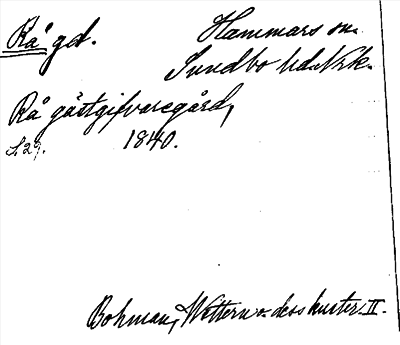 Rå gd. Hammars sn.
Sundbo hd. Nrk.
Rå gästgifvaregård,
S. 27. 1840.
Bohman, Wettern o. dess kuster. II.